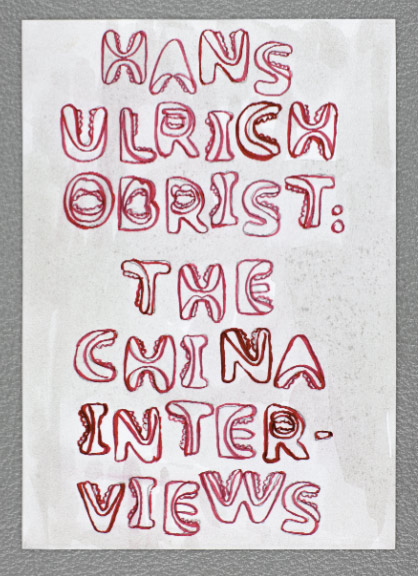 HANS
ULRICH
OBRIST:
THE
CHINA
INTER-
VIEWS